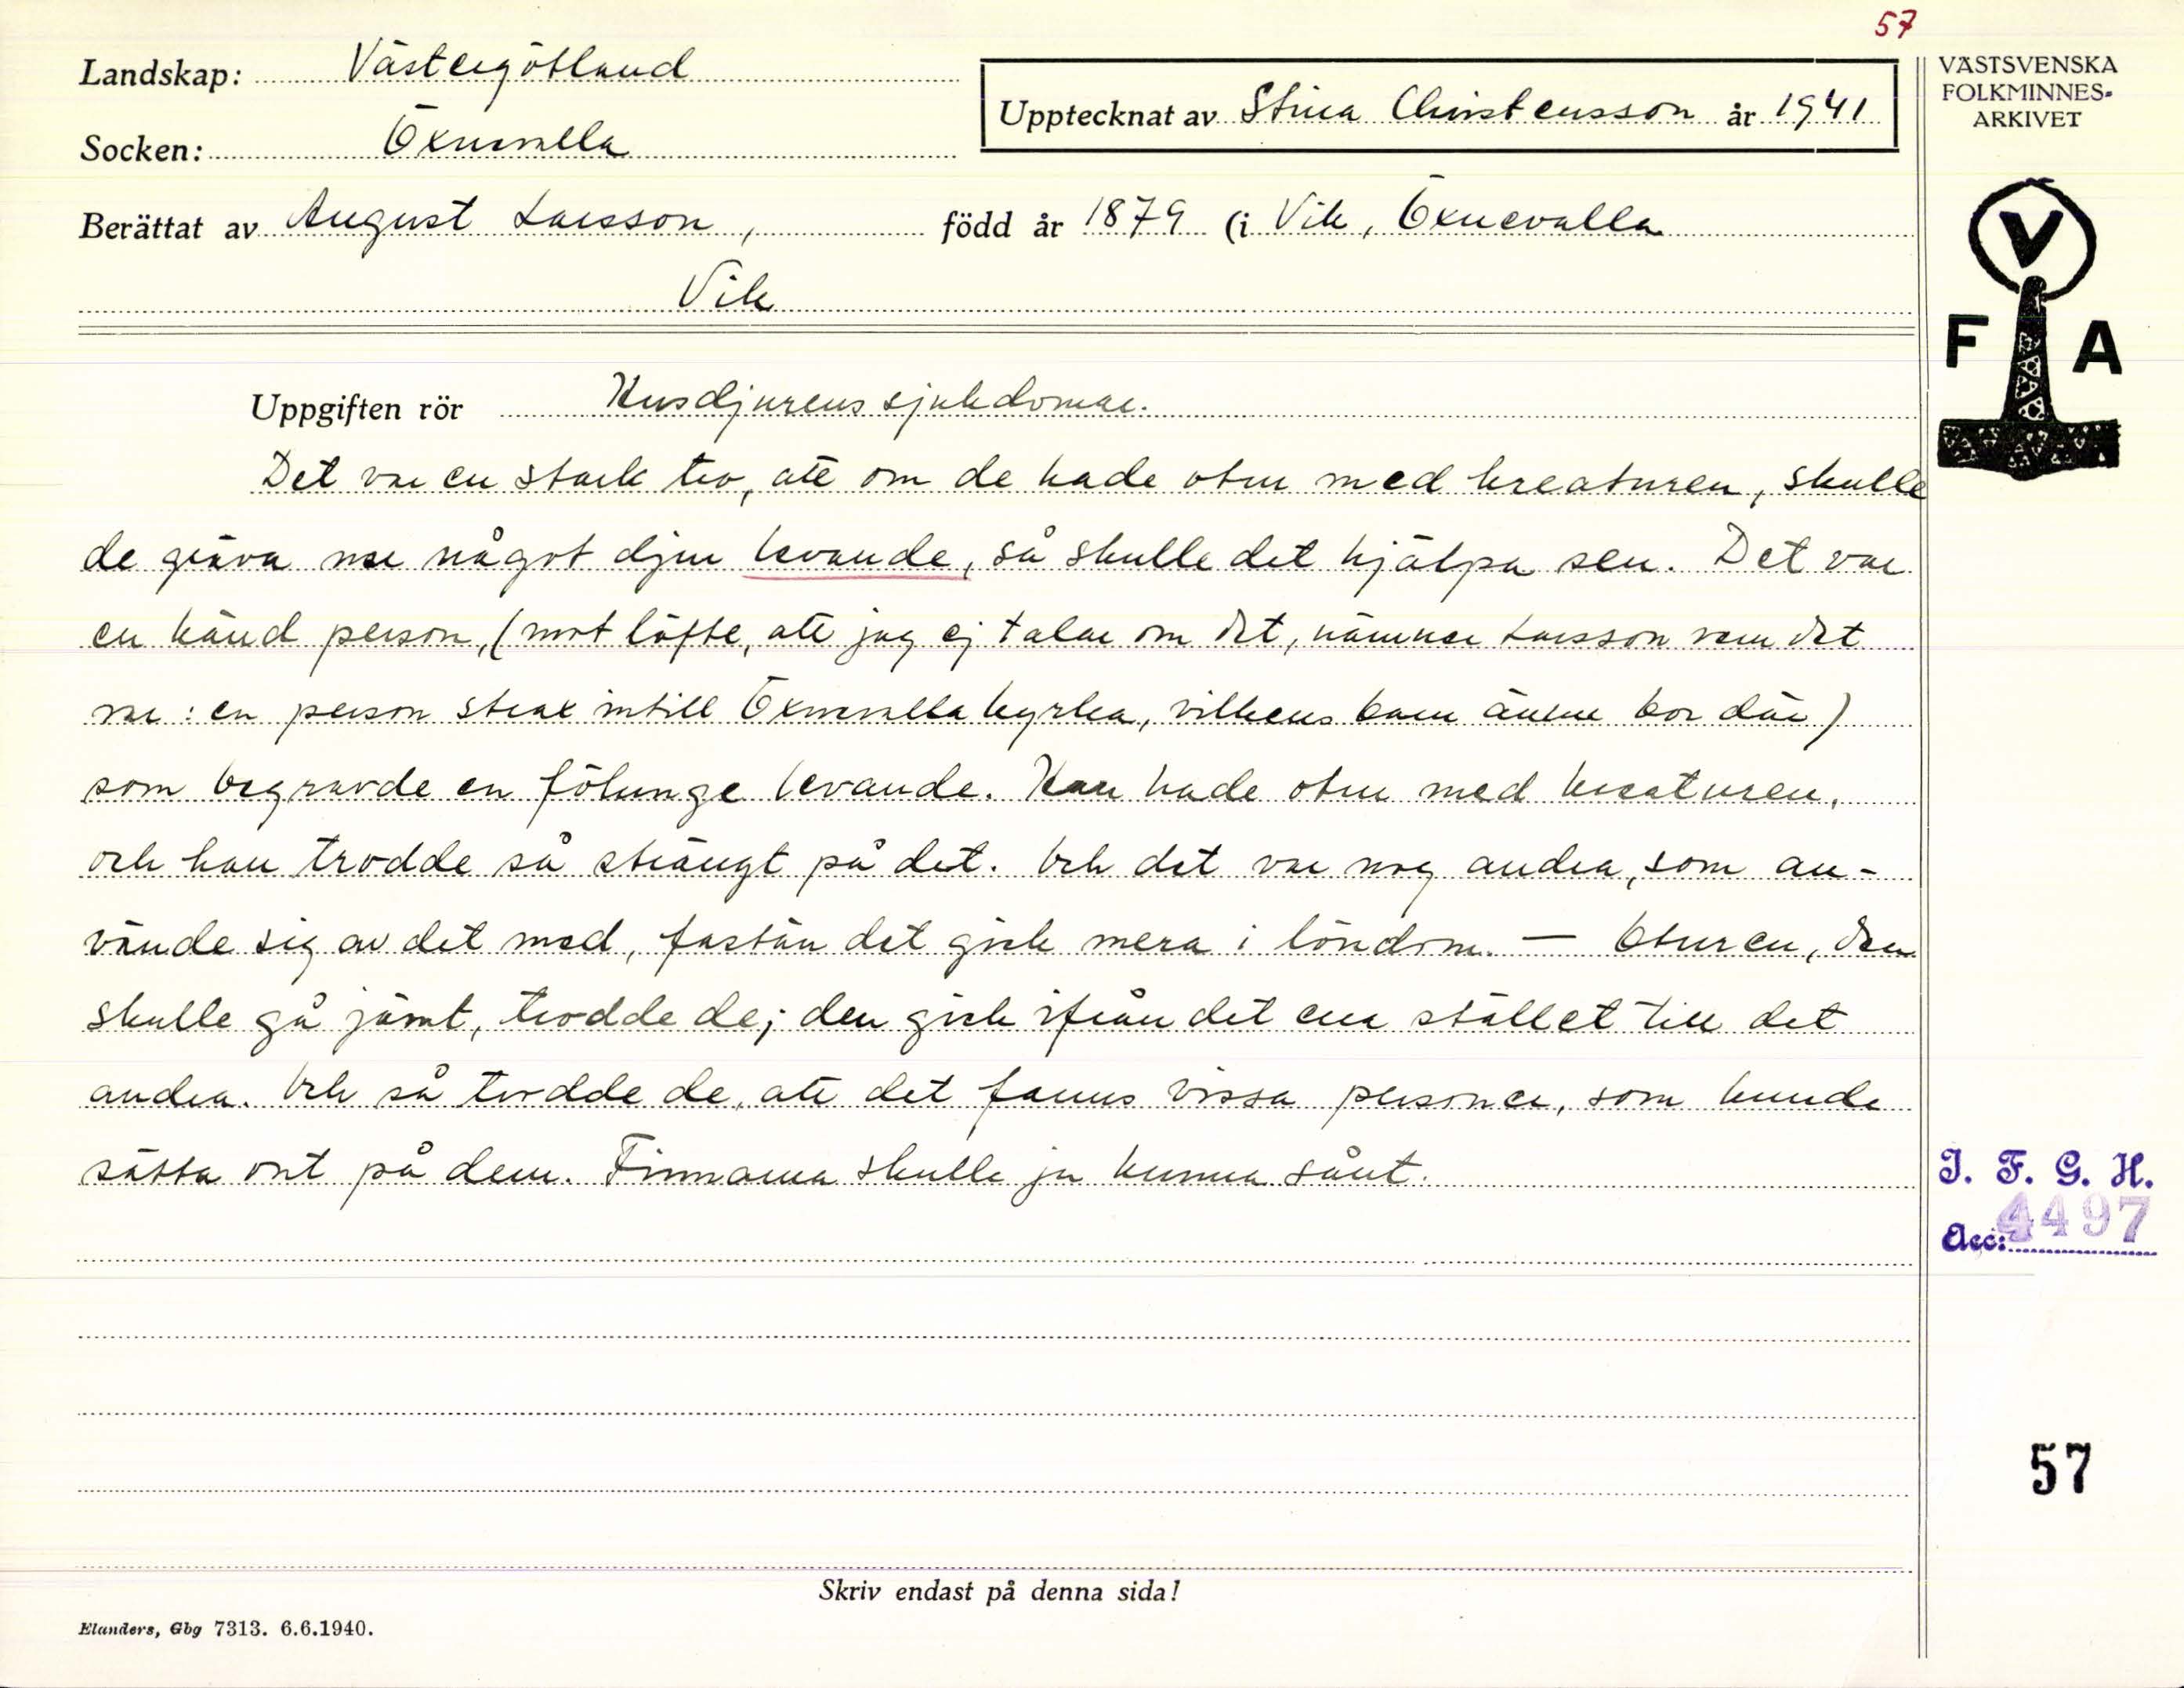 57
Landskap: Västergötland
Socken: Öxnevalla
Upptecknat av Stina Christensson år 1941
VÄSTSVENSKA
FOLKMINNES-
ARKIVET
Berättat av August Larsson, född år 1879 (i Vik, Öxnevalla
Vik
V
F A
Uppgiften rör Husdjurens sjukdomar.
Det var en stark tro, att om de hade otur med kreaturen, skulle
de gräva ner något djur levande, så skulle det hjälpa sen. Det var
en känd person, (mot löfte, att jag ej talar om det, nämner Larsson vem det
var: en person strax intill Öxnevalla kyrka, vilkens barn ännu bor där)
som begravde en fölunge levande. Han hade otur med kreaturen,
och han trodde så strängt på det. Och det var nog andra, som an-
vände sig av det med, fastän det gick mera i löndom. — Oturen, den
skulle gå jämt, trodde de; den gick ifrån det ena stället till det
andra. Och så trodde de, att det fanns vissa personer, som kunde
sätta ont på dem. Finnarna skulle ju kunna sånt.
I. F. G. H.
Acc: 4497
57
Skriv endast på denna sida!
Elanders, Gbg 7313. 6.6.1940.